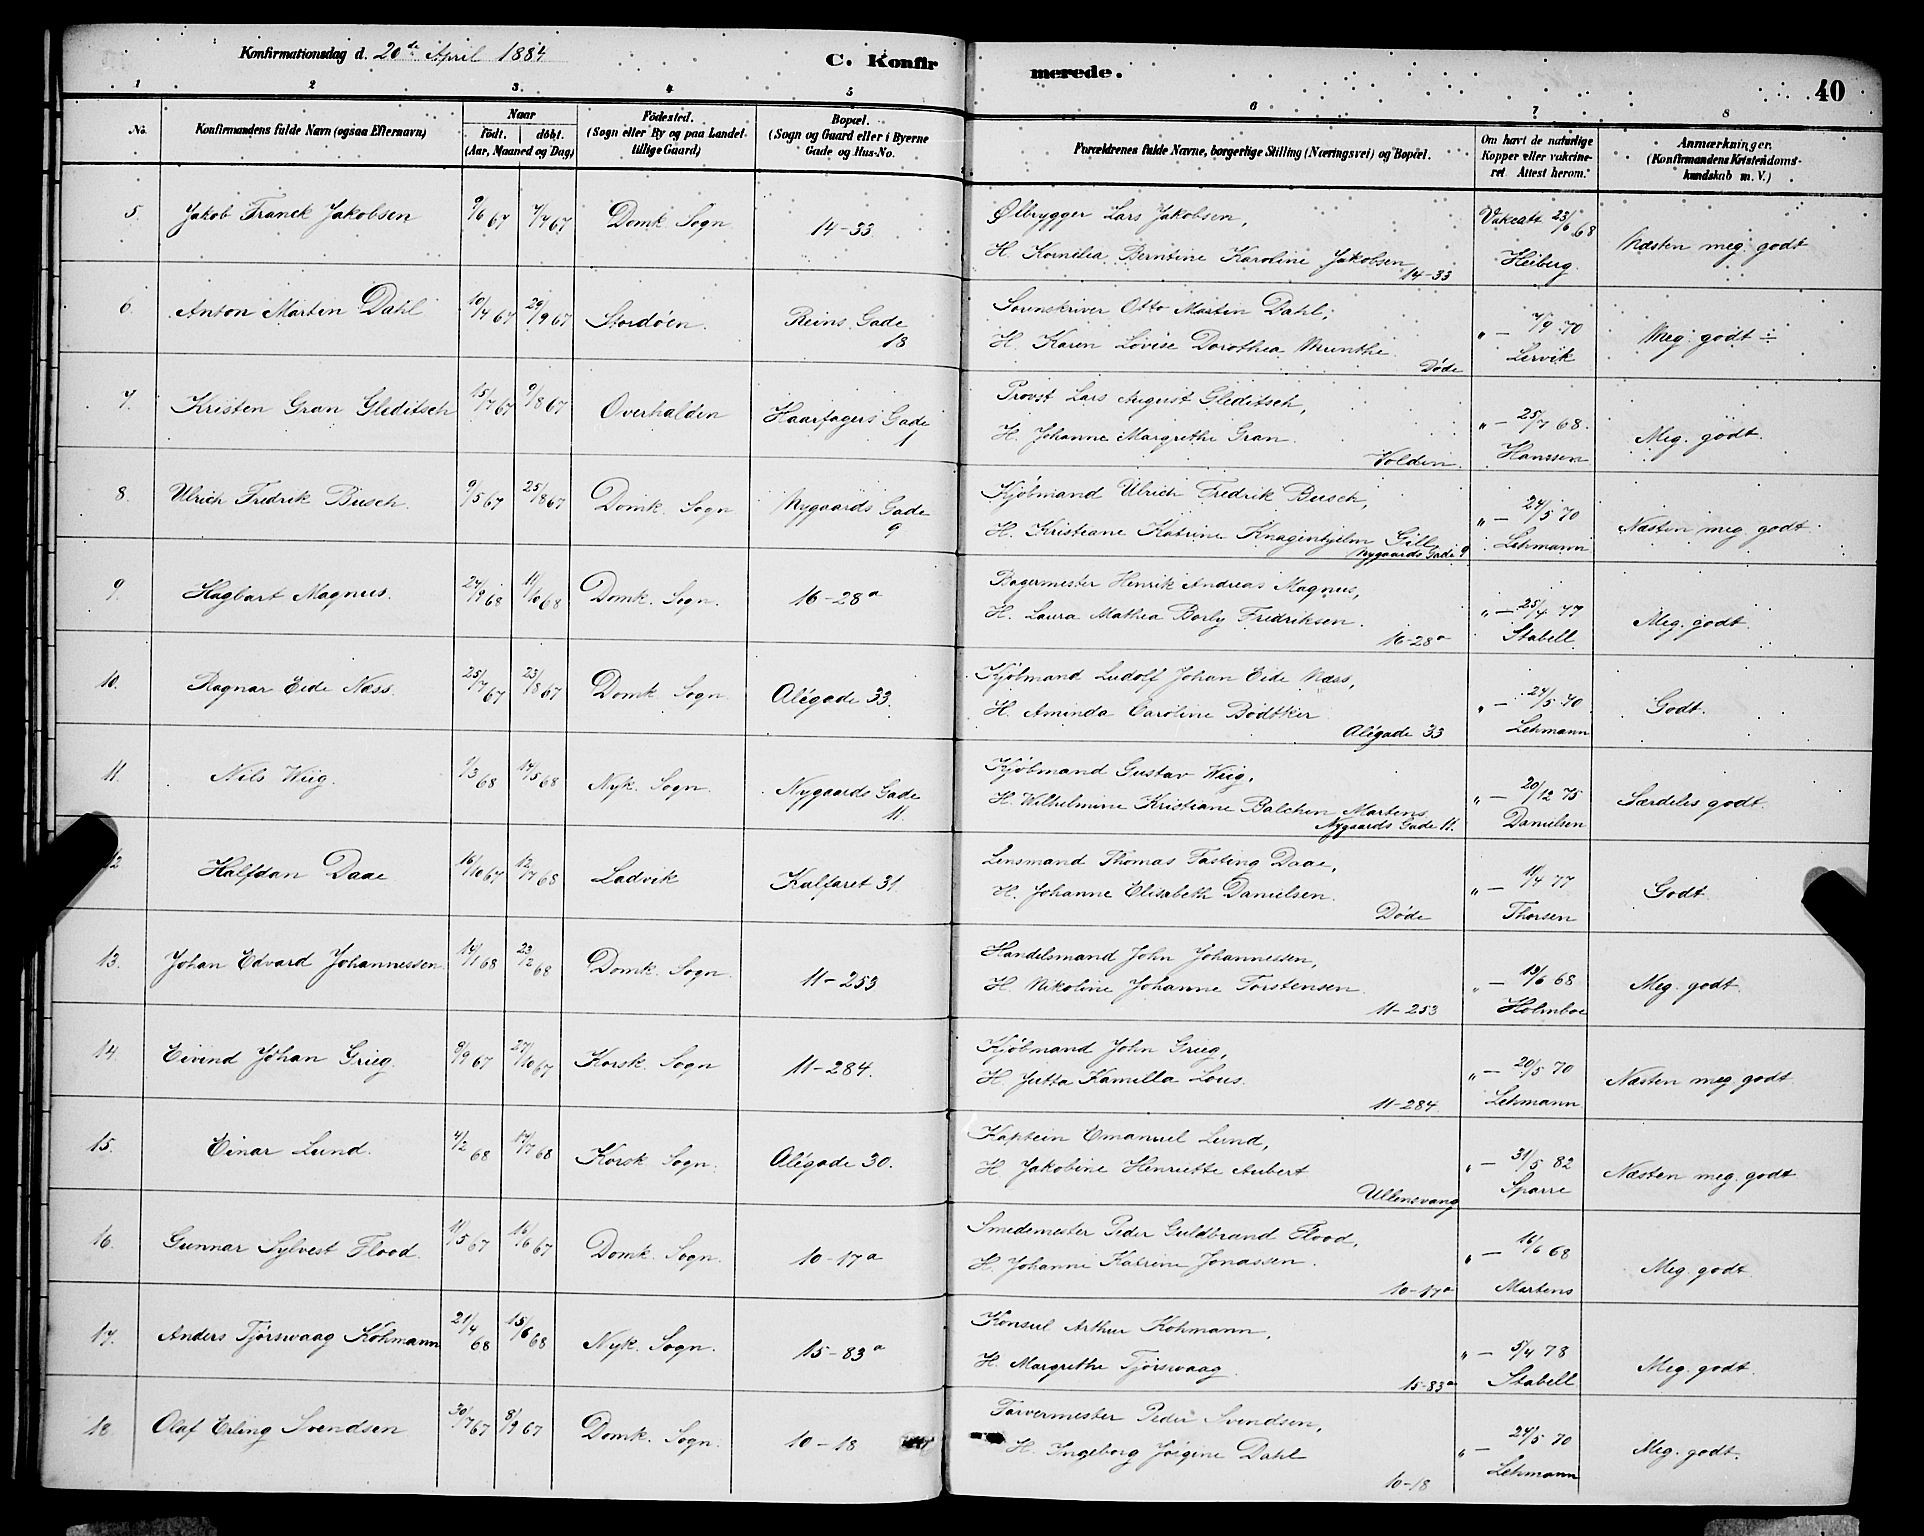 Konfirmationsdag d. 20de April 1884
C. Konfirmerede.
40
1 2 3. 4 5 6 7 8
No. Konfirmandens fulde Navn (ogsaa Efternavn) Naar født. døbt. (Aar, Maaned og Dag) Fødested. (Sogn eller By og paa Landet tillige Gaard) Bopæl. (Sogn og Gaard eller i Byerne Gade og Hus-No. Forældrenes fulde Navne, borgerlige Stilling (Næringsvei) og Bopæl. Om havt de naturlige Kopper eller vaccineret. Attest herom. Anmærkninger. (Konfirmandens Kristendomskundskab m. V.)
5. Jakob Franck Jakobsen 9/6 67 7/7 67 Domk. Sogn 14-33 Ølbrygger Lars Jakobsen, Vakcatt 23/6 68 Næsten meg. godt
H. Kornelia Berntine Karoline Jakobsen 14-33 Heiberg.
6. Anton Martin Dahl 10/4 67 29/9 67 Stordøen. Reins Gade 18 Sorenskriver Otto Martin Dahl; " — 7/9 70 Meg. godt ÷
H. Karen Lovise Dorothea Munthe. Døde Lervik
7. Kristen Gran Gleditsch 15/7 67 9/8 67 Overhalden Haarfagers Gade 1 Provst Lars August Gleditsch, " — 25/7 68. Meg. godt.
H. Johanne Margrethe Gran. Volden. Hanssen
8. Ulrich Fredrik Busch. 9/5 67 25/8 67 Domk. Sogn Nygaards Gade 9 Kjøbmand Ulrich Fredrik Busch, " — 24/5 70 Næsten meg. godt.
H. Kristiane Katrine Knagenhjelm Gill Nygaards Gade 9 Lehmann
9. Hagbart Magnus. 27/9 68 11/10 68 Domk. Sogn. 16-28a Bagermester Henrik Andreas Magnus, " — 25/4 77 Meg. godt.
H. Laura Mathea Borly Fredriksen. 16-28a Stabell
10. Ragnar Eide Næss. 25/7 67 23/8 67 Domk. Sogn. Alégade 33. Kjøbmand Ludolf Johan Eide Næss, " — 24/5 70 Godt.
H. Aminda Caroline Bødtker Alégade 33 Lehmann
11. Nils Wiig. 1/3 68 17/5 68 Nyk. Sogn. Nygaards Gade 11. Kjøbmand Gustav Wiig, " — 20/12 75 Særdeles godt.
H. Wilhelmine Kristiane Balchen Martens. Nygaards Gade 11. Danielsen
12 Halfdan Daae 16/10 67 12/7 68 Ladvik Kalfaret 31. Lensmand Thomas Fasting Daae, " — 11/4 77 Godt.
H. Johanne Elisabeth Danielsen. Døde Thorsen
13. Johan Edvard Johannessen 14/1 68 23/2 68 Domk. Sogn. 11-253 Handelsmand John Johannessen, " — 19/6 68 Meg. godt.
H. Nikoline Johanne Torstensen. 11-253 Holmboe
14. Eivind Johan Grieg. 8/9 67 27/10 67 Korsk. Sogn 11-284. Kjøbmand John Grieg, " — 20/5 70 Næsten meg. godt.
H. Jutta Kamilla Lous. 11-284 Lehmann
15. Einar Lund. 4/2 68 17/7 68 Korsk. Sogn. Alégade 30. Kaptein Emanuel Lund, " — 31/5 82 Næsten meg. godt
H. Jakobine Henriette Aubert Ullensvang Sparre
16. Gunnar Sylvest Flood. 11/5 67 16/6 67 Domk. Sogn. 10-17a Smedemester Peder Guldbrand Flood, " — 16/6 68 Meg. godt.
H. Johanne Katrine Jonassen. 10-17a Martens
17. Anders Tjørswaag Kohmann 21/4 68 15/6 68 Nyk. Sogn. 15-83a Konsul Arthur Kohmann, " — 5/4 78 Meg. godt.
H. Margrethe Tjørswaag. 15-83a Stabell
18. Olaf Erling Svendsen 30/7 67 8/9 67 Domk. Sogn. 10-18 Farvermester Peder Svendsen, " — 24/5 70 Meg. godt.
H. Ingeborg Jørgine Dahl 10-18 Lehmann